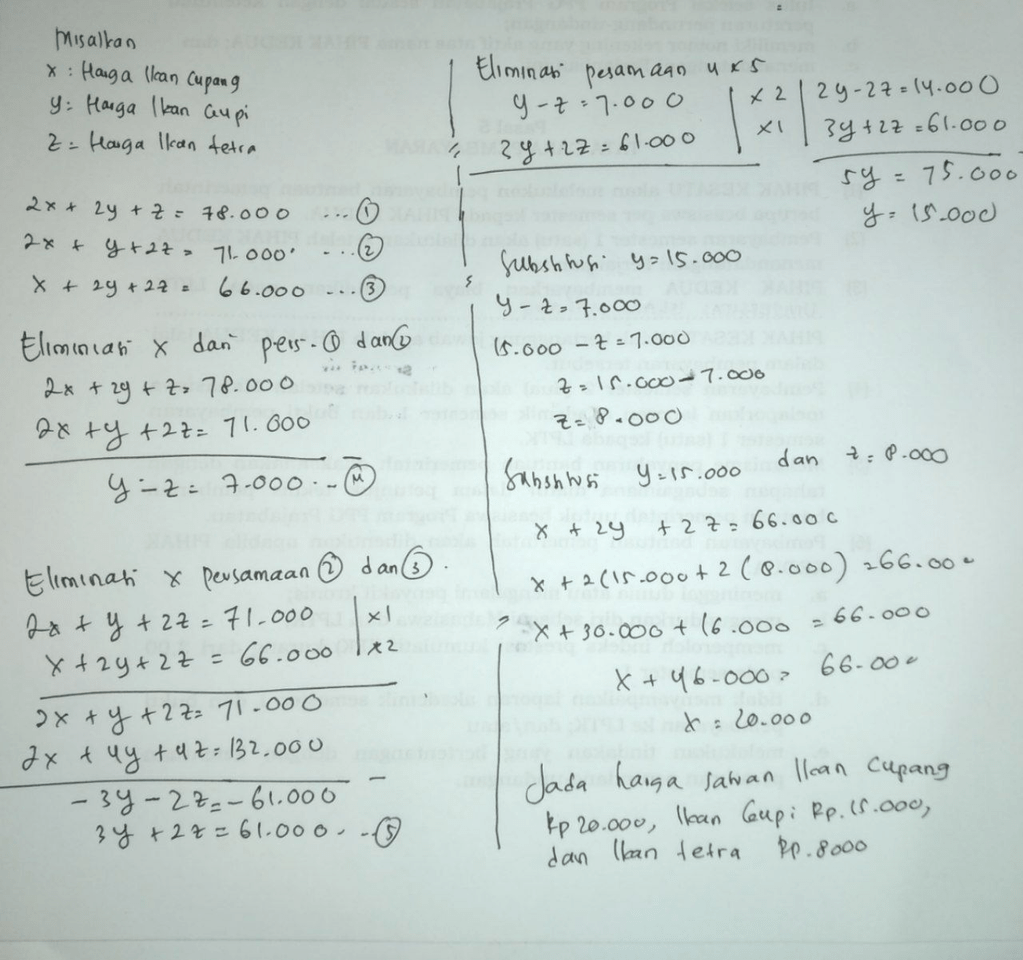 Misalkan
x : Harga Ikan Cupang
y = Harga Ikan Gupi
z = Harga Ikan tetra
2x + 2y + z = 78.000 ... ①
2x + y + 2z = 71.000 ... ②
x + 2y + 2z = 66.000 ... ③
Eliminiasi x dari pers. ① dan ②
2x + 2y + z = 78.000
2x + y + 2z = 71.000
y - z = 7.000 ... ④
Eliminasi x Persamaan ② dan ③.
2x + y + 2z = 71.000 | x1
x + 2y + 2z = 66.000 | x2
2x + y + 2z = 71.000
2x + 4y + 4z = 132.000
-
- 3y - 2z = - 61.000
3y + 2z = 61.000 ... ⑤
Eliminasi pesamaan 4 x 5
y - z = 7.000 | x 2 | 2y - 2z = 14.000
3y + 2z = 61.000 | x1 | 3y + 2z = 61.000
5y = 75.000
y = 15.000
Substitusi y = 15.000
y - z = 7.000
15.000 - z = 7.000
z = 15.000 - 7.000
z = 8.000
Substitusi y = 15.000 dan z = 8.000
x + 2y + 2z = 66.000
x + 2(15.000 + 2(8.000) = 66.000
x + 30.000 + 16.000 = 66.000
x + 46.000 = 66.000
x = 20.000
Jada harga satuan Ikan Cupang
Rp 20.000, Ikan Gupi Rp. 15.000,
dan Ikan tetra Rp. 8000